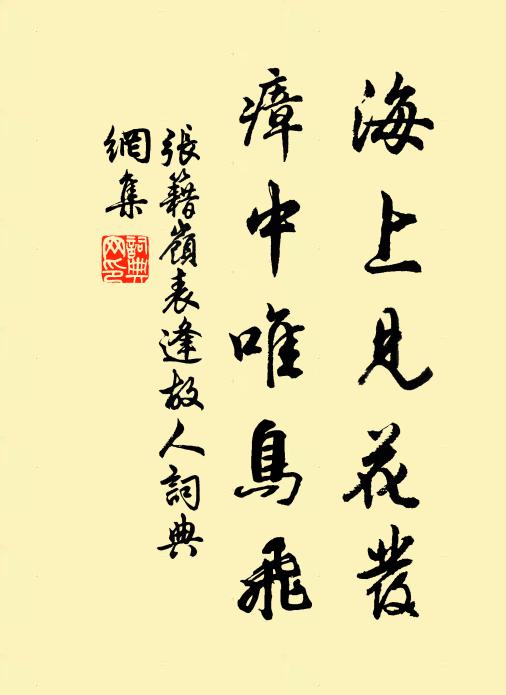 海上見花發
瘴中唯鳥飛
張籍嶺表逢故人詞典
網集
詞典網印